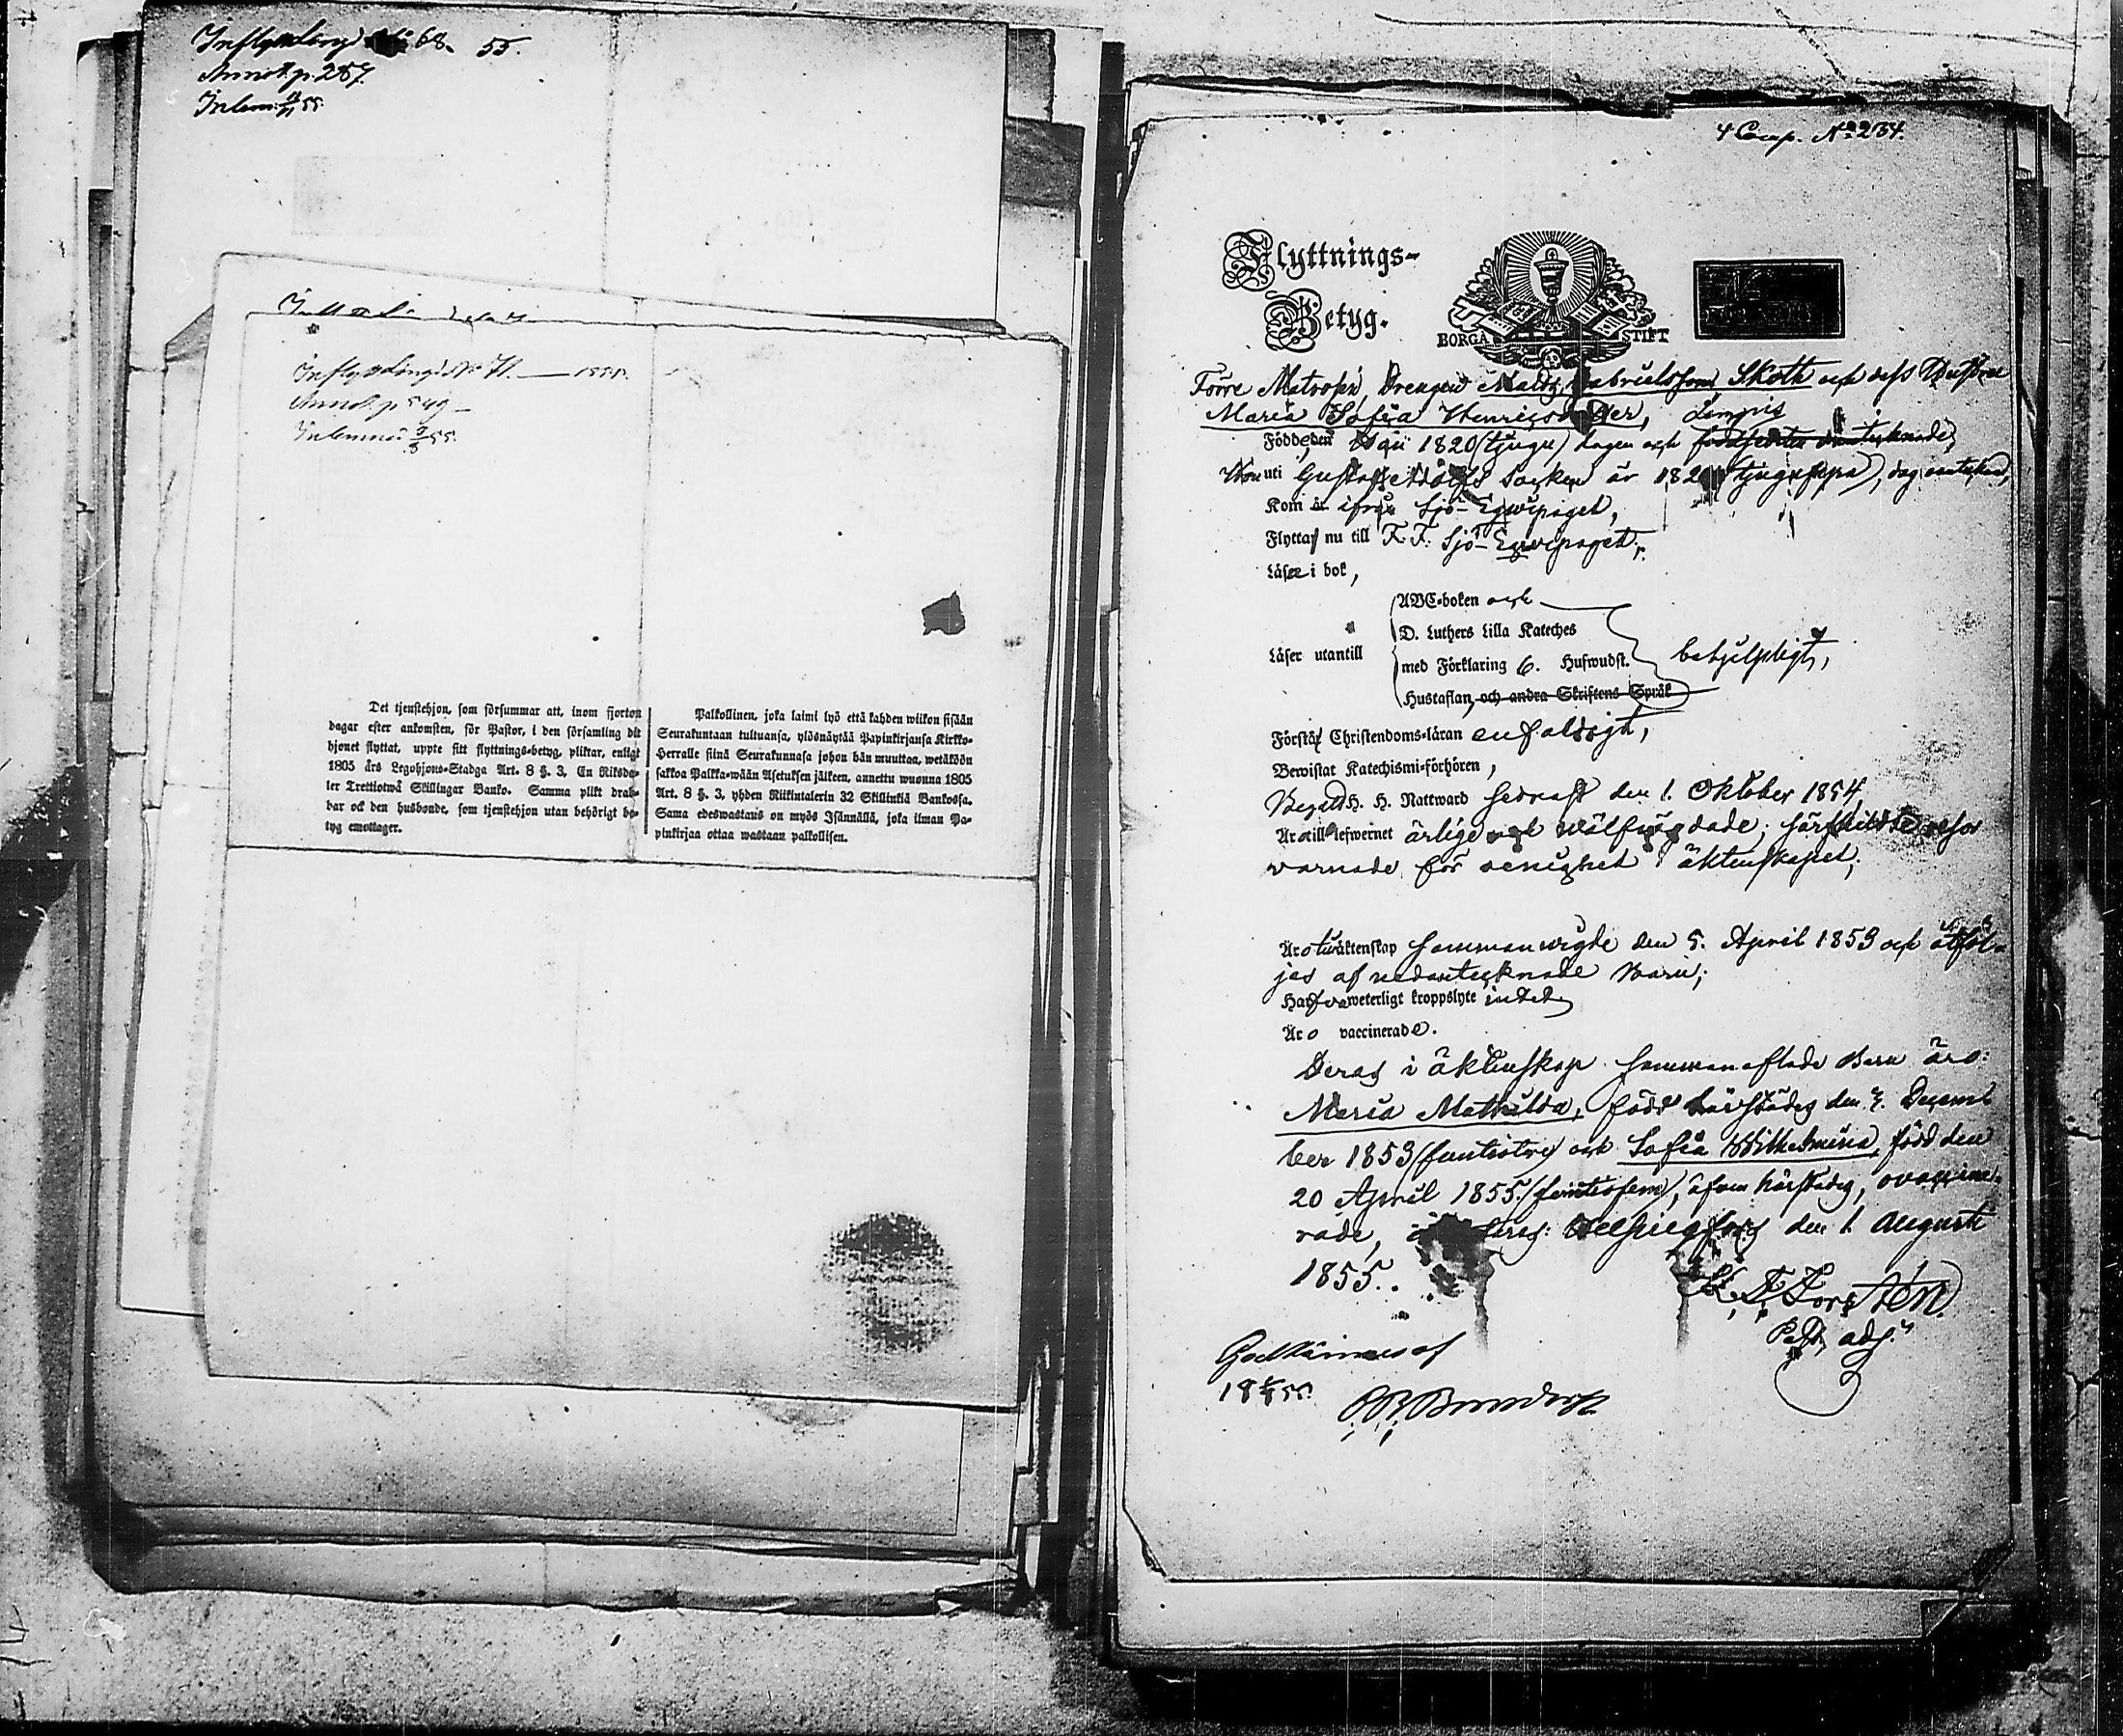 55.
Annot. p. 287.
Inlem.
Inflyttn. Läng. № 71. 1855.
Annot. p. 549
Inlemnad 55.
Det tjenstehjon, som försummar att, inom fjorton
dagar efter ankomsten, för Pastor, i den församling dit
hjonet flyttat, uppte sitt flyttnings-betyg, pliktar, enligt
1805 års Legohjons-Stadga Art. 8 §. 3, En Riksda-
ler Trettiotwå Skillingar Banko. Samma plikt drab-
bar ock den husbonde, som tjenstehjon utan behörigt be-
tyg emottager.
Palkollinen, joka laimi lyö että kahden wiikon sisään
Seurakuntaan tultuansa, ylösnäytää Papinkirjansa Kirkko-
Herralle siinä Seurakunnasa johon hän muuttaa, wetäköön
sakkoa Palkka-wään Asetuksen jälkeen, annettu wuonna 1805
Art. 8 §. 3, yhden Riikintalerin 32 Skillinkiä Bankossa.
Sama edeswastaus on myös Isännällä, joka ilman Pa-
pinkirjaa ottaa wastaan palkollisen.
4 Comp. № 234.
Flyttnings-
Betyg.
BORGÅ STIFT
Förre Matrosen, Drengen Matts Gabrielsson Skoth och dess Hustru
Maria Sofia Henricsdotter,
Födde, den 1820 (tjugu) dagen och
uti Gustaf Adolfs Socken år 182
Kom ifrån Sjö-Equipaget,
Flytta nu till F. F. Sjö-Equipaget;
Läse i bok,
ABC-boken och
D. Luthers Lilla Kateches
Läser utantill
med Förklaring 6. Hufwudst.
behjelpligt,
Hustaflan, och andra Skriftens Språk
Förstå Christendoms-läran enfaldigt,
Bewistat Katechismi-förhören,
Begått H. H. Nattward sednast den 1. Oktober 1854,
Äro till lefwernet ärlige och wälfrägdade;
varnade för oenighet i äktenskapet;
Äro i äktenskap sammanvigde den 5. April 1853 och åtföl-
jas af nedantecknade Barn;
Hafva weterligt kroppslyte intet
Äro vaccinerade.
Deras i äktenskap sammanaflade Barn äro:
Maria Mathilda, född härstädes den 7. Decem-
ber 1853 (femtiotre) och Sofia Wilhelmina, född den
20 April 1855 (femtiofem), äfven härstädes, ovaccine-
rade, Helsingfors den 1. Augusti
1855.
Forstén
Past. adj.
Godkännes af
18 55.